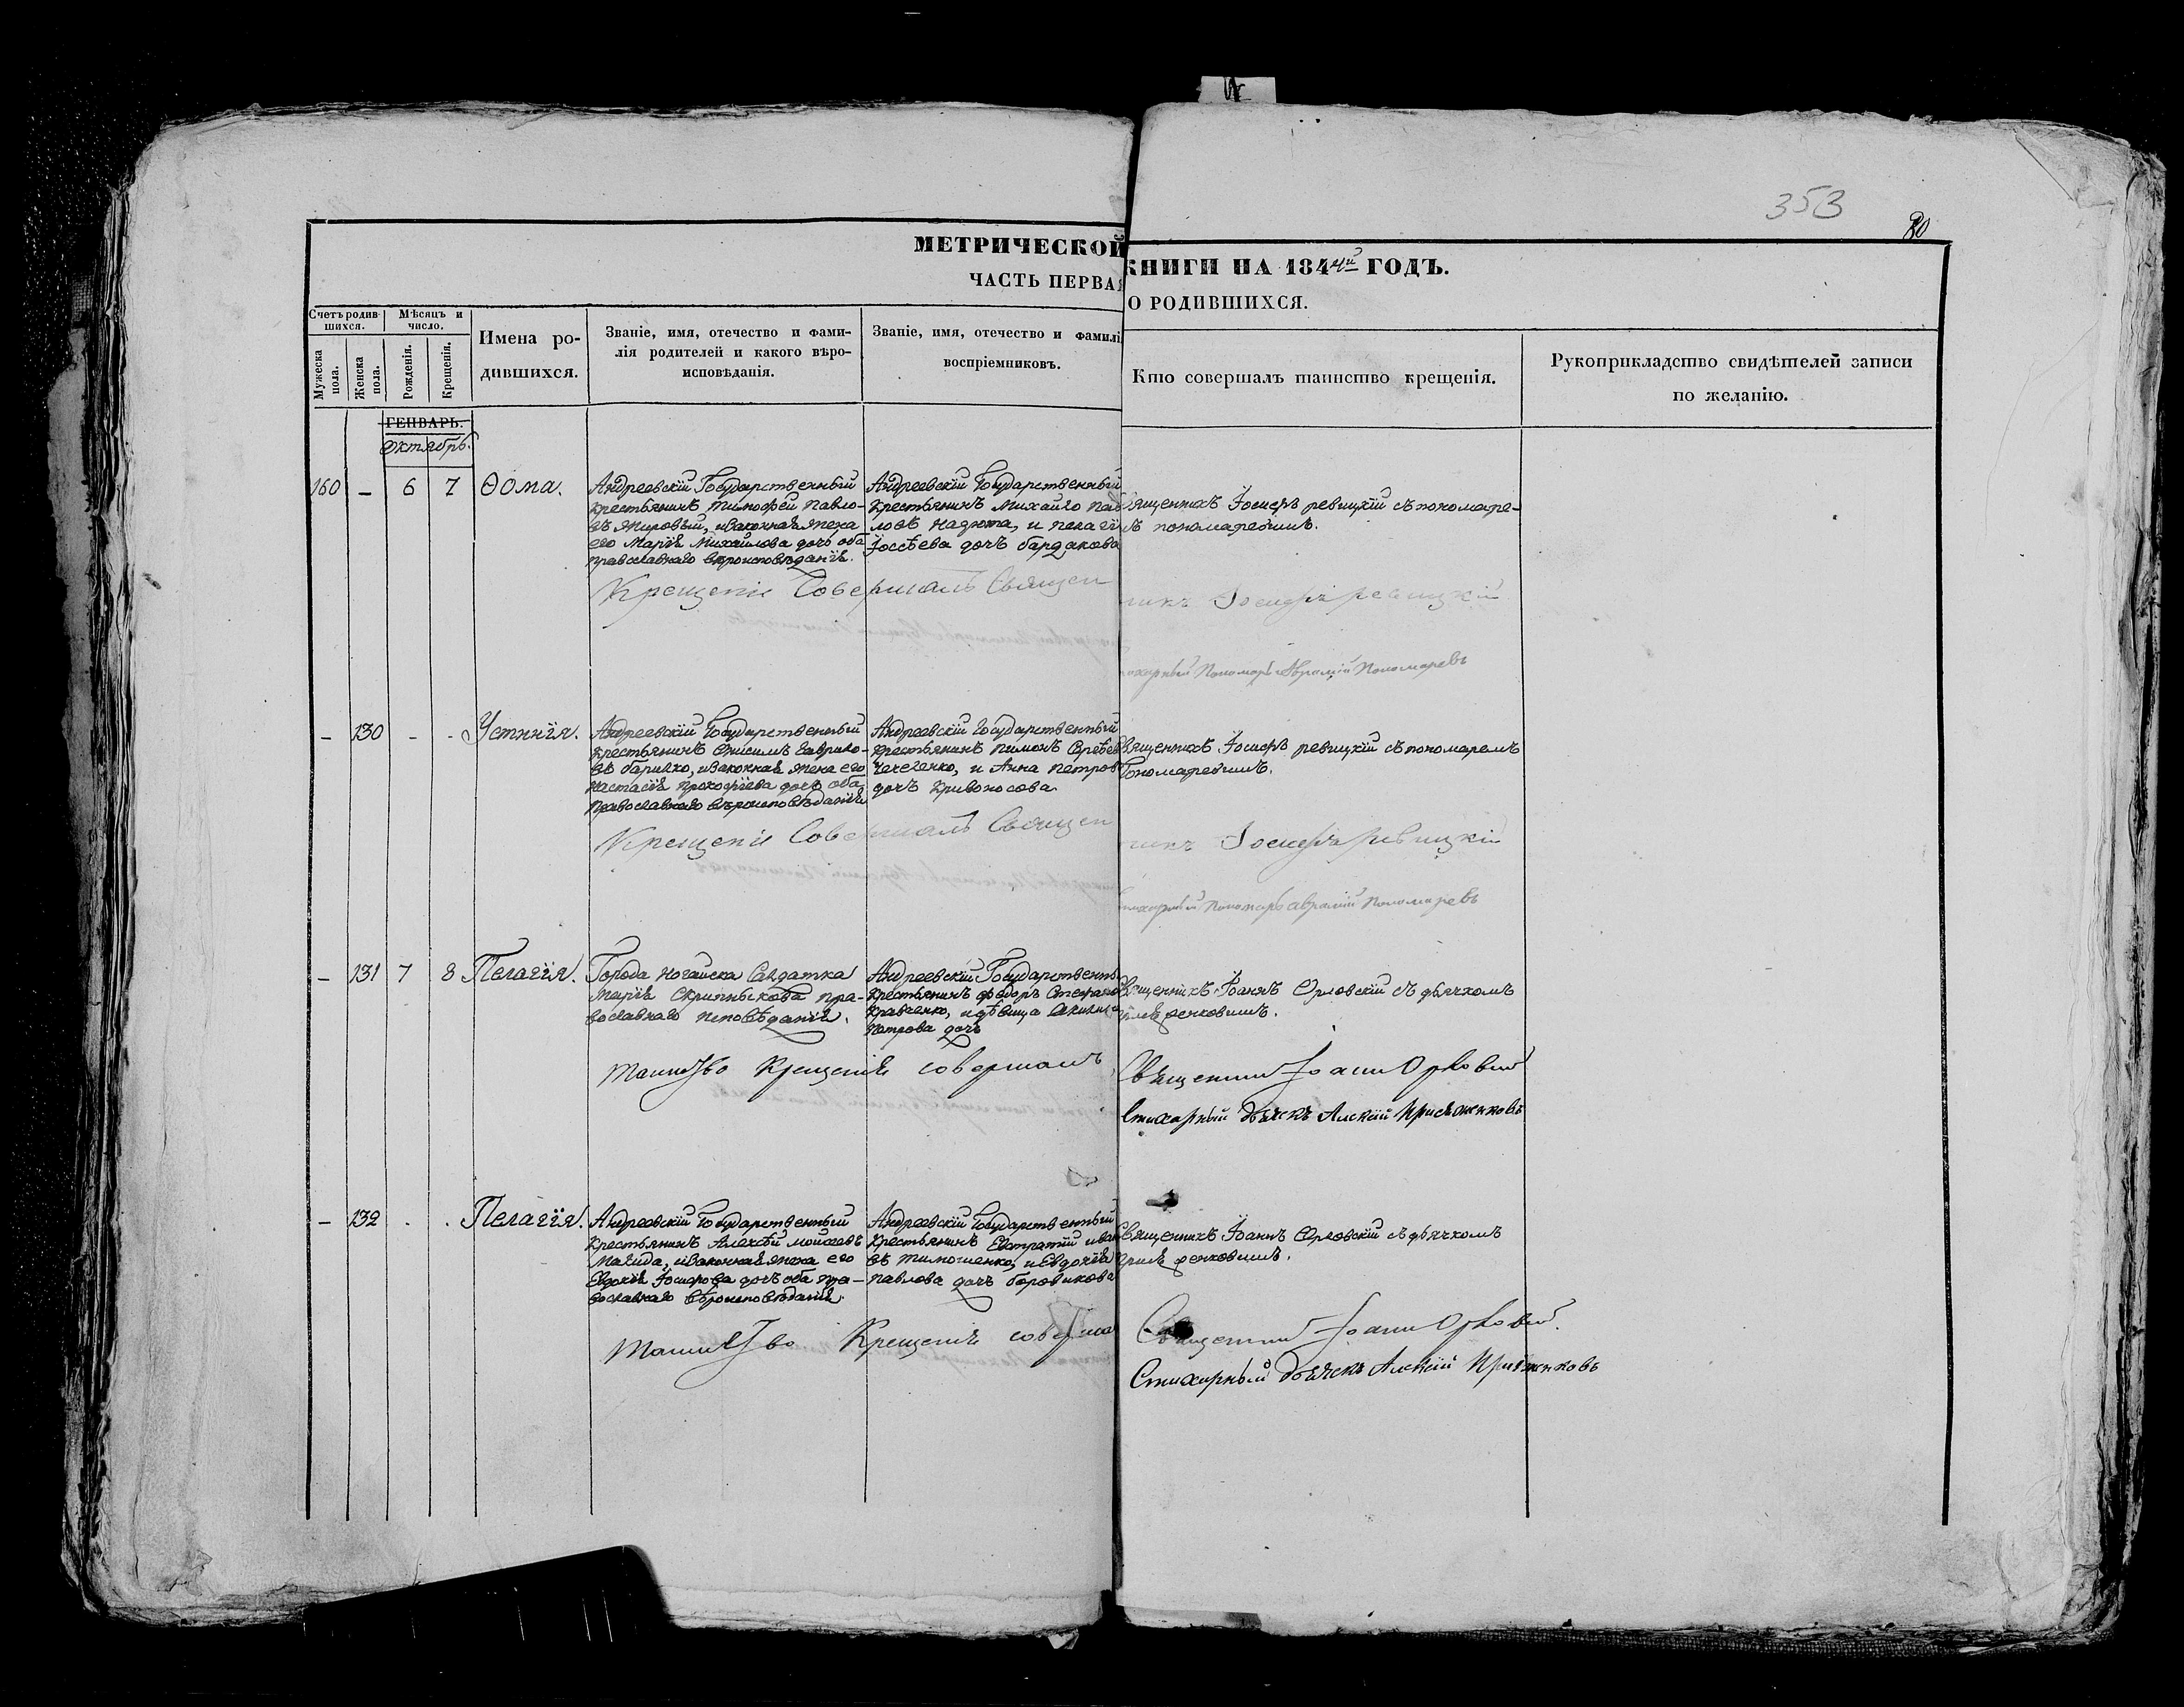 353
80
МЕТРИЧЕСКОЙ КНИГИ НА 1844й ГОДЪ.
ЧАСТЬ ПЕРВАЯ О РОДИВШИХСЯ.
Счетъ родив-
шихся.
Мужеска
пола.
Женска
пола.
Мѣсяцъ и
число.
Рожденія.
Крещенія.
Имена ро-
дившихся.
Званіе, имя, отечество и фами-
лія родителей и какого вѣро-
исповѣданія.
Званіе, имя, отечество и фамилі
воспріемниковъ.
Кто совершалъ таинство крещенія.
Рукоприкладство свидѣтелей записи
по желанію.
ГЕНВАРЬ.
Октябрь.
160 – 6 7 Ѳома.
Андреевскій Государственный
крестьянинъ Тимофей Павло-
въ Жировый, изаконная жена
его Марія Михайлова дочь оба
православнаго вѣроисповѣданія.
Андреевскій Государственный
крестьянинъ Михайло Пав
ловъ Надюта, и Пелагія
Іоссѣева дочь бардакова
вященникъ Іосифъ ревицкій съ пономаре-
мъ пономаревимъ.
Крещеніе Совершалъ Священ
никъ Іосифъ ревицкій
Пономарь Аврамій Пономаревъ
– 130 - - Устинія.
Андреевскій Государственный
крестьянинъ Онисимъ Гаврило-
въ барилко, изаконная жена его
Настасія прокофіева дочь оба
православнаго вѣроисповѣданія
Андреевскій Государственный
крестьянинъ Пимонъ Сергѣев
Чечетенко, и Анна Петров
дочь Кривоносова.
вященникъ Іосифъ ревицкій съ пономаремъ
Пономаревимъ.
Крещеніе Совершалъ Священ
никъ Іосифъ ревицкій
Пономарь Аврамій Пономаревъ
– 131 7 8 Пелагія.
Города Ногайска Салдатка
Марія Скрипныкова пра-
вославнаго исповѣданія.
Андреевскій Государственны
крестьянинъ Федоръ Стефано
Кравченко, идѣвица Акилина
Петрова дочь
Священникъ Іоаннъ Орловскій съ дьячкомъ
Таинство Крещенія совершалъ
Священник Іоанн Орловский
Стихарный дьячекъ Алексій Присяженковъ
– 132 . . Пелагія.
Андреевскій Государственный
крестьянинъ Алексѣй Мойсеевъ
Магида, изаконная жена его
Евдокія Іосифова дочь оба пра-
вославнаго вѣроисповѣданія.
Андреевскій Государственный
крестьянинъ Евстратій иван
въ Тимошенко, и Евдокія
Павлова дочь боровикова
Священникъ Іоаннъ Орловскій съ дьячкомъ
Таинство Крещенія соверша
Священник Іоанн Орловский.
Стихарный дьячекъ Алексій Присяженковъ